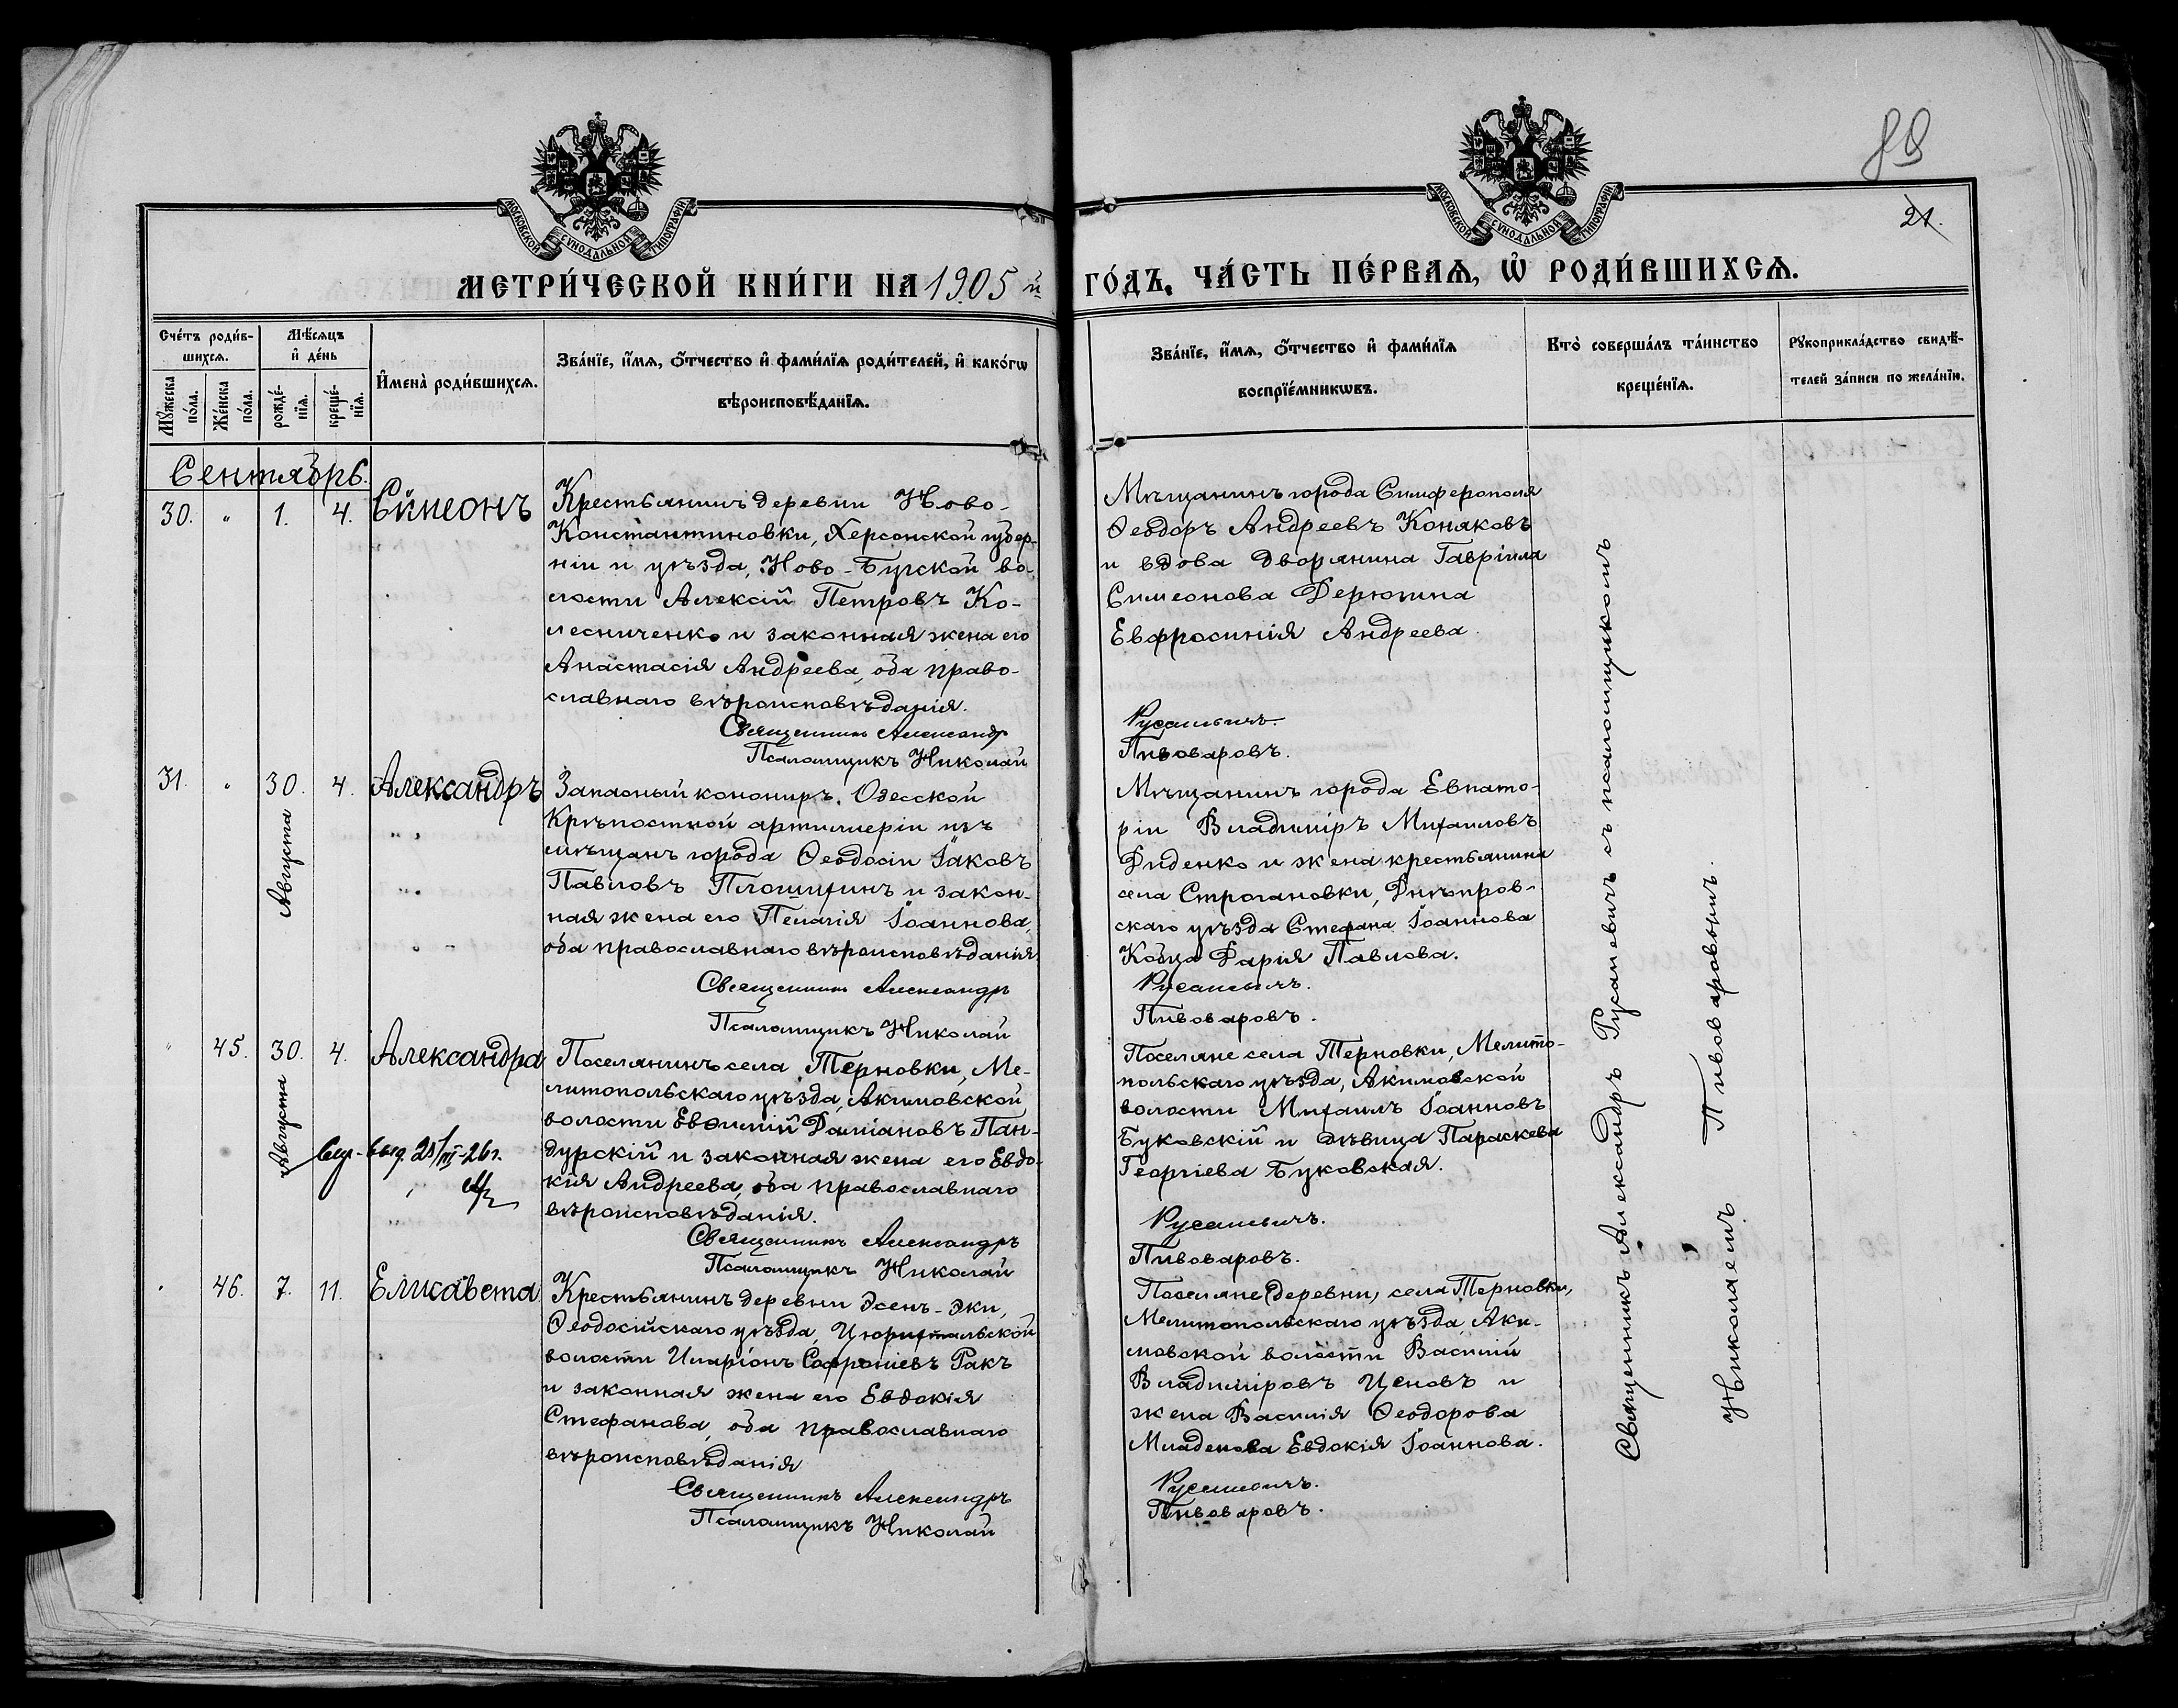 89
21.
МОСКОВСКОЙ СѴНОДАЛЬНОЙ ТИПОГРАФІИ
МОСКОВСКОЙ СѴНОДАЛЬНОЙ ТИПОГРАФІИ
МЕТРИ́ЧЕСКОЙ КНИ́ГИ НА 1905 й ГО́ДЪ, ЧА́СТЬ ПЕ́РВАѦ, Ѡ҆ РОДИ́ВШИХСѦ.
Сче́тъ роди́в-
шихсѧ.
Мꙋ́жеска по́ла.
Же́нска по́ла.
Мѣ́сѧцъ и҆ де́нь
рожде́-нїѧ.
креще́-нїѧ.
И҆мена̀ роди́вшихсѧ.
Зва́нїе, и҆́мѧ, ѻ҆́тчество и҆ фами́лїѧ роди́телей, и҆ како́гѡ
вѣроисповѣ́данїѧ.
Зва́нїе, и҆́мѧ, ѻ҆́тчество и҆ фами́лїѧ
воспрїе́мникѡвъ.
Кто̀ соверша́лъ та́инство
креще́нїѧ.
Рꙋкоприкла́дство свидѣ́-
телей за́писи по жела́нїю.
Сентябрь.
30. " 1. 4. Симеонъ
Крестьянинъ деревни Ново-
Константиновки, Херсонской губер-
ніи и уѣзда, Ново-Бугской во-
лости Алексій Петровъ Ко-
лесниченко и законная жена его
Анастасія Андреева, оба право-
славнаго вѣроисповѣданія.
Священникъ Александръ
Псаломщикъ Николай
Мѣщанинъ города Симферополя
Ѳеодоръ Андреевъ Коняковъ
и вдова дворянина Гавріила
Симеонова Дерюгина
Евфросинія Андреева.
Русаневичъ.
Пивоваровъ.
31. " 30. Августа 4. Александръ
Запасный канониръ Одесской
Крѣпостной артиллеріи изъ
мѣщанъ города Ѳеодосіи Іаковъ
Павловъ Плошихинъ и закон-
ная жена его Пелагія Іоаннова,
оба православнаго вѣроисповѣданія.
Священникъ Александръ
Псаломщикъ Николай
Мѣщанинъ города Евпато-
ріи Владиміръ Михаиловъ
Диденко и жена крестьянина
села Строгановки, Днѣпров-
скаго уѣзда Стефана Іоаннова
Кобца Дарія Павлова.
Русаневичъ.
Пивоваровъ.
" 45. 30. Августа 4. Александра
выд. 25/III-26 г.
Поселянинъ села Терновки, Ме-
литопольскаго уѣзда, Акимовской
волости Евѳимій Даміановъ Пан-
дурскій и законная жена его Евдо-
кія Андреева, оба православнаго
вѣроисповѣданія.
Священникъ Александръ
Псаломщикъ Николай
Поселяне села Терновки, Мелито-
польскаго уѣзда, Акимовской
волости Михаилъ Іоанновъ
Буковскій и дѣвица Параскева
Георгіева Буковская.
Русаневичъ.
Пивоваровъ.
" 46. 7. 11. Елисавета
Крестьянинъ деревни Эсенъ-Эки,
Ѳеодосійскаго уѣзда, Цюрихтальской
волости Иларіонъ Софроніевъ Ракъ
и законная жена его Евдокія
Стефанова, оба православнаго
вѣроисповѣданія
Священникъ Александръ
Псаломщикъ Николай
Поселяне (деревни) села Терновки,
Мелитопольскаго уѣзда, Аки-
мовской волости Василій
Владиміровъ Ценовъ и
жена Василія Ѳеодорова
Младенова Евдокія Іоаннова.
Русаневичъ.
Пивоваровъ.
Священникъ Александръ Русаневичъ съ псаломщикомъ
Николаемъ Пивоваровымъ.